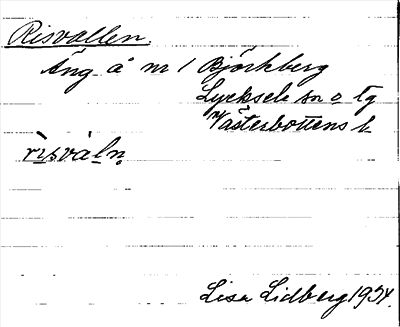 Risvallen.
Äng å nr 1 Björkberg
Lycksele sn o tg
Västerbottens l.
rìsváln
Lisa Lidberg 1934.